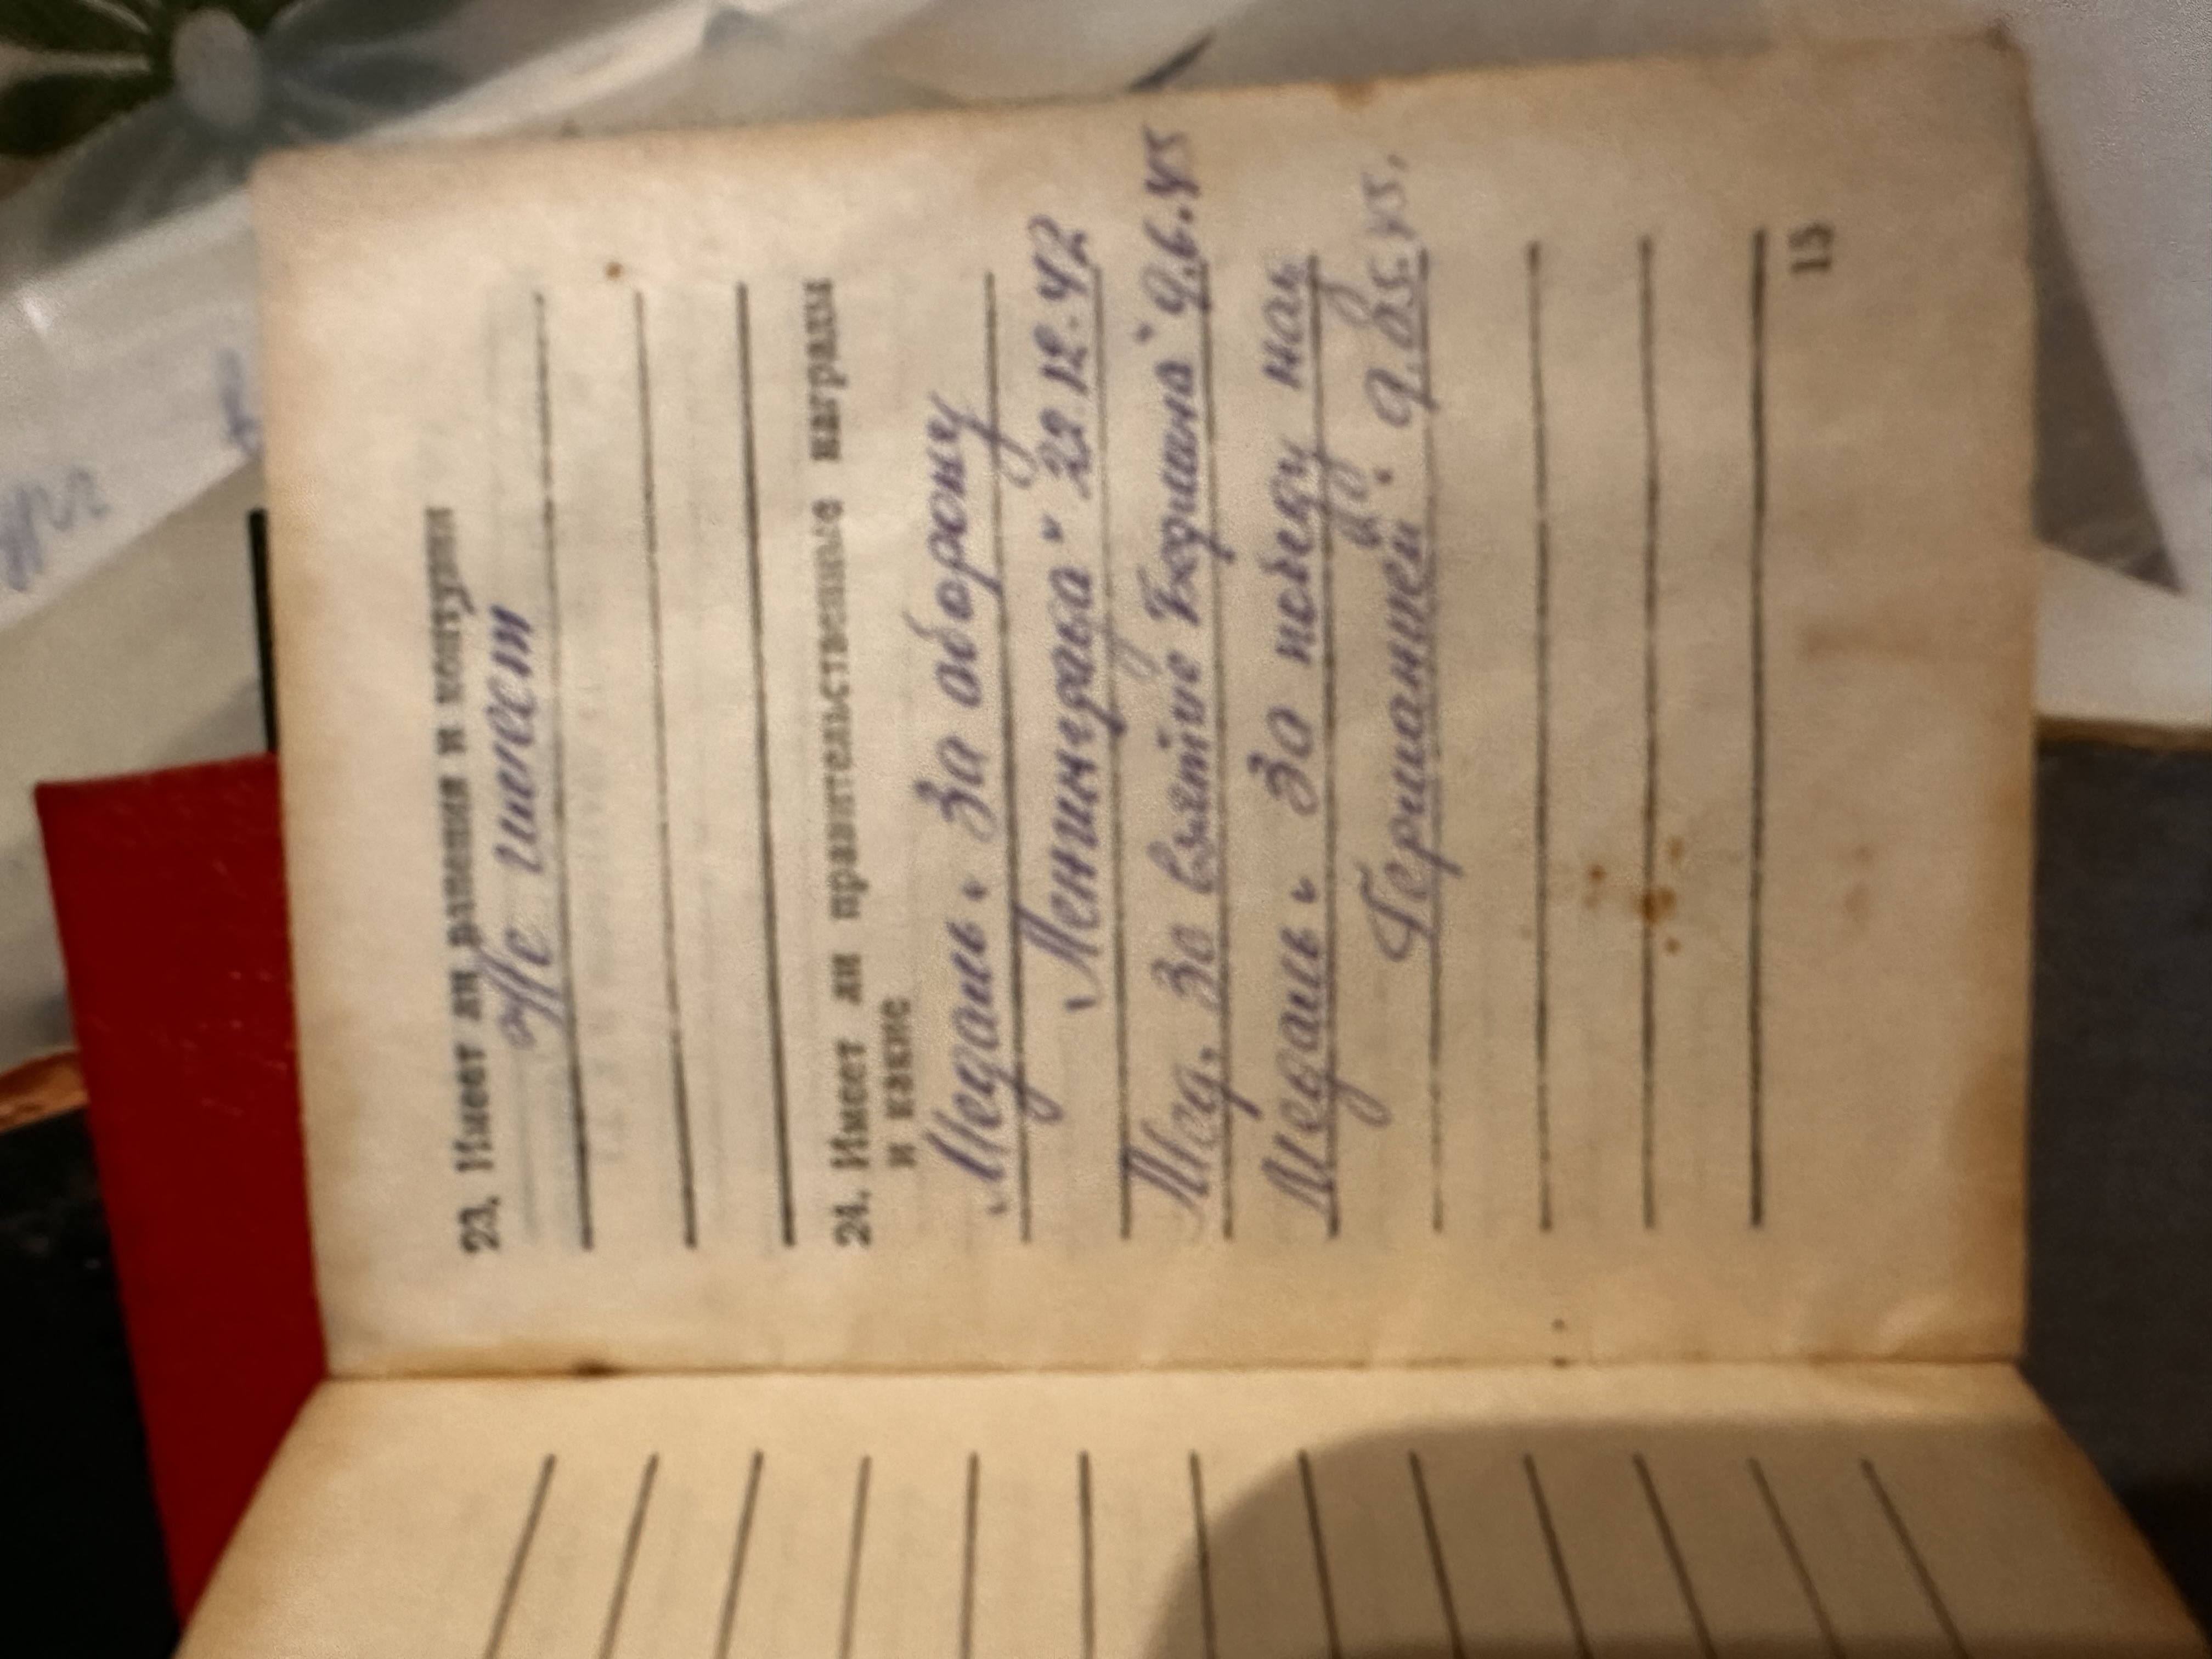 23. Имеет ли ранения и контузии
Не имеет
24. Имеет ли правительственные награды
и какие
Медаль „За оборону
Ленинграда" 22.12.42
Мед. За взятие Берлина" 9.6.45
Медаль „За победу над
Германией". 9.05.45.
15